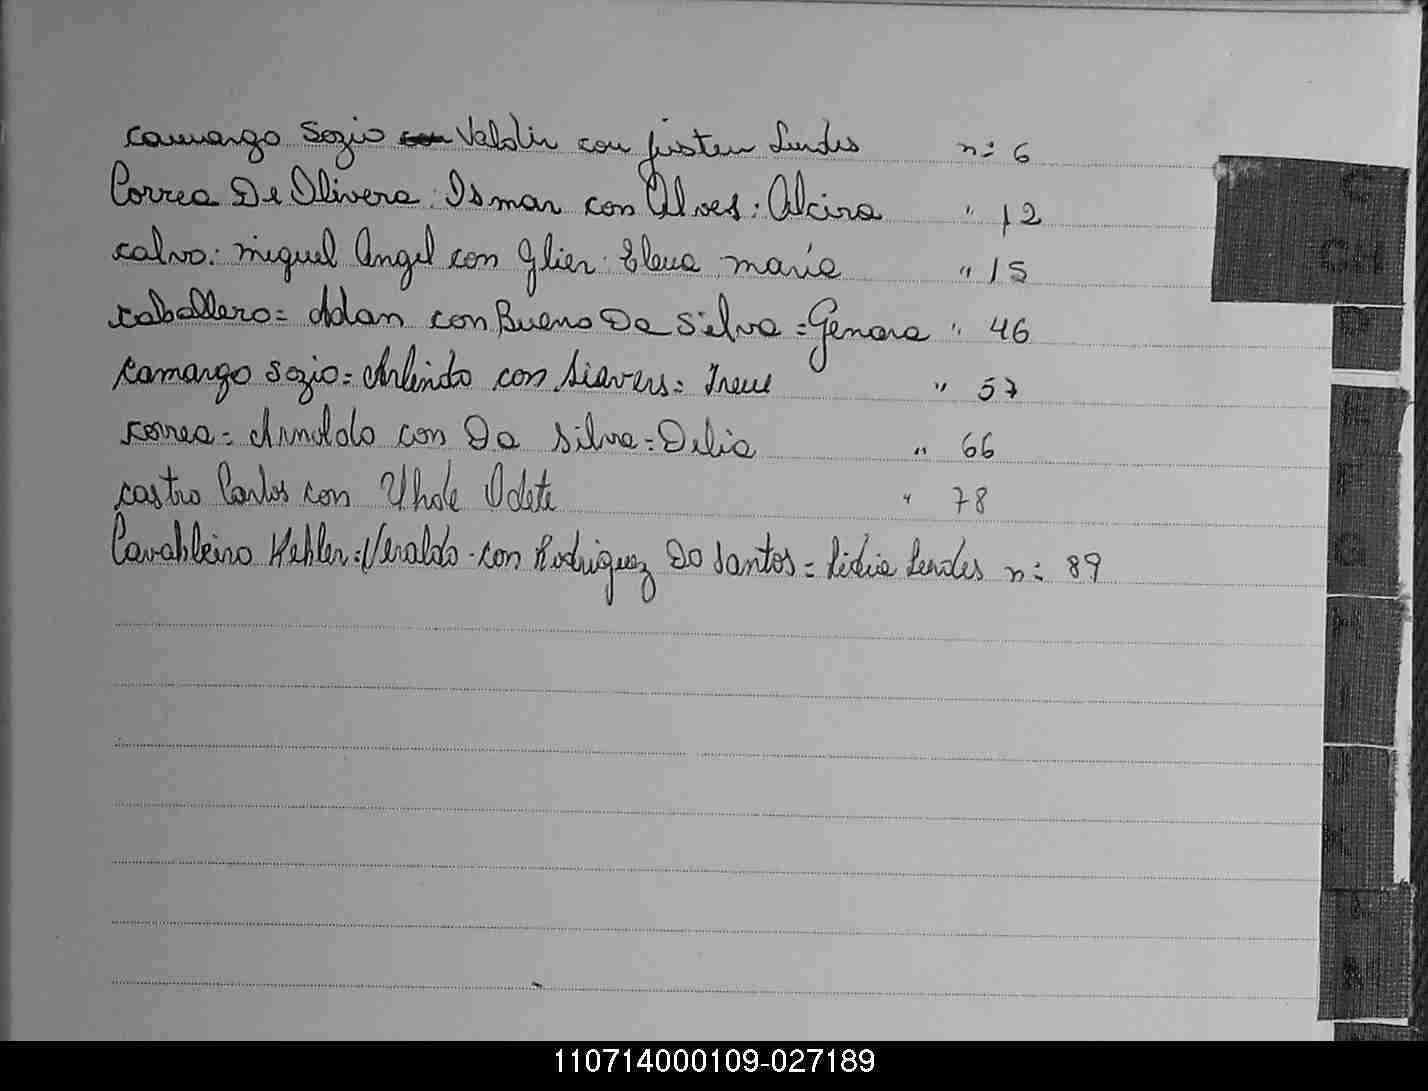 camargo Sozio Valdir con justen Lurdes n: 6
Correa De Olivera: Ismar con Alves: Alcira " 12
calvo: miguel Angel con Glier: Elena maria " 15
caballero= Adan con Bueno Da Silva = Genara " 46
camargo Sozio= Arlindo con Siavers= Irene " 57
correa= Arnoldo con Da Silva= Delia " 66
castro Carlos con Uhde Odete " 78
Cavalheiro Kehler: Veraldo con Rodriguez Do Santos = Lidia Lurdes n: 89
C
CH
D
F
G
H
I
J
K
L
N
110714000109-027189